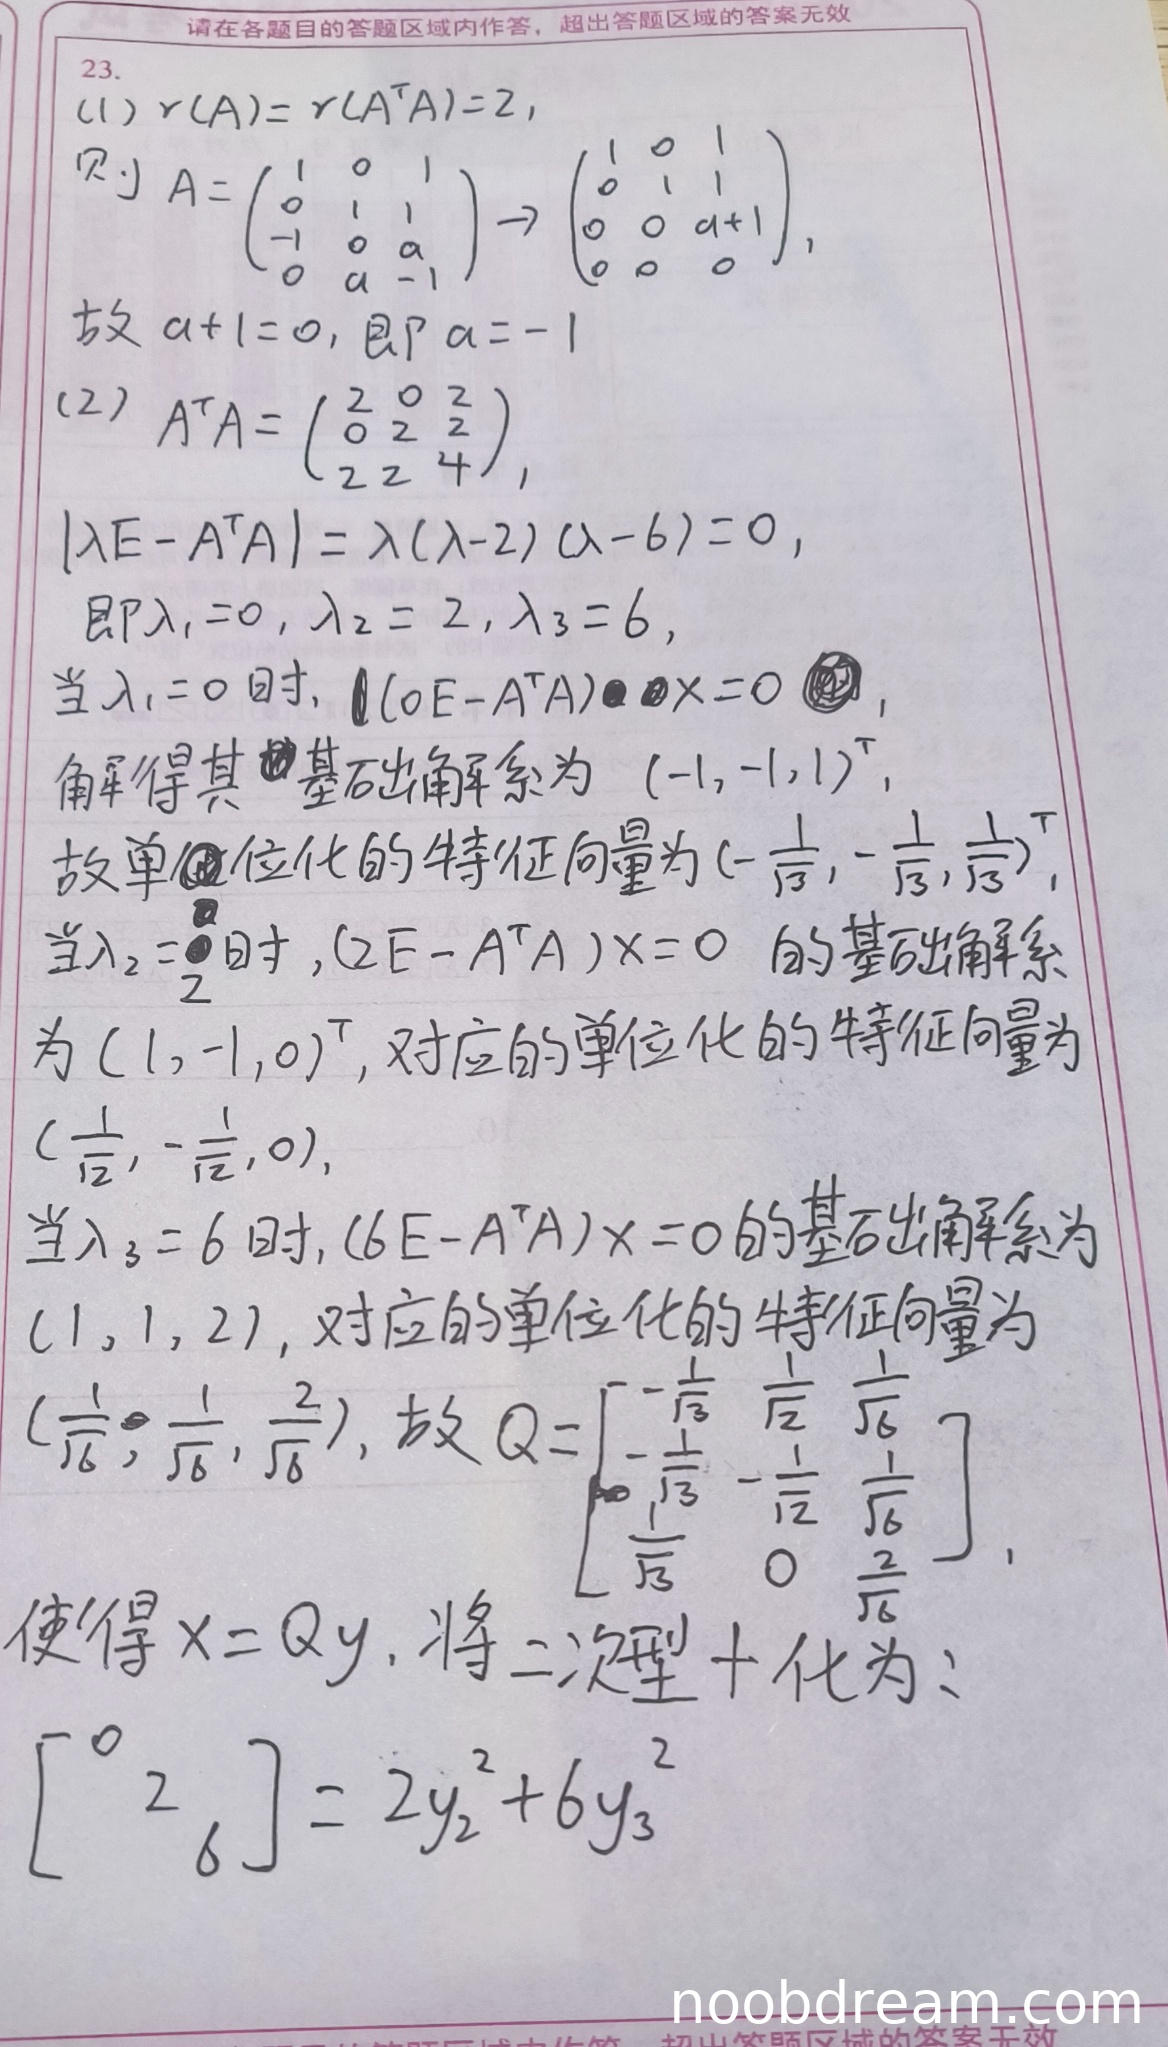 请在各题目的答题区域内作答，超出答题区域的答案无效
23.
(1) r(A)=r(AᵀA)=2,
则 A=(1 0 1; 0 1 1; -1 0 a; 0 a -1) → (1 0 1; 0 1 1; 0 0 a+1; 0 0 0),
故 a+1=0, 即 a=-1
(2) AᵀA=(2 0 2; 0 2 2; 2 2 4),
|λE-AᵀA|=λ(λ-2)(λ-6)=0,
即λ₁=0, λ₂=2, λ₃=6,
当λ₁=0时, (0E-AᵀA)x=0,
解得其基础解系为 (-1,-1,1)ᵀ,
故单位化的特征向量为(-1/√3, -1/√3, 1/√3)ᵀ,
当λ₂=2时, (2E-AᵀA)x=0 的基础解系
为(1,-1,0)ᵀ, 对应的单位化的特征向量为
(1/√2, -1/√2, 0),
当λ₃=6时, (6E-AᵀA)x=0的基础解系为
(1,1,2), 对应的单位化的特征向量为
(1/√6, 1/√6, 2/√6), 故 Q=[-1/√3 1/√2 1/√6; -1/√3 -1/√2 1/√6; 1/√3 0 2/√6],
使得 x=Qy, 将二次型 f 化为:
[0 2 6]=2y₂²+6y₃²
noobdream.com